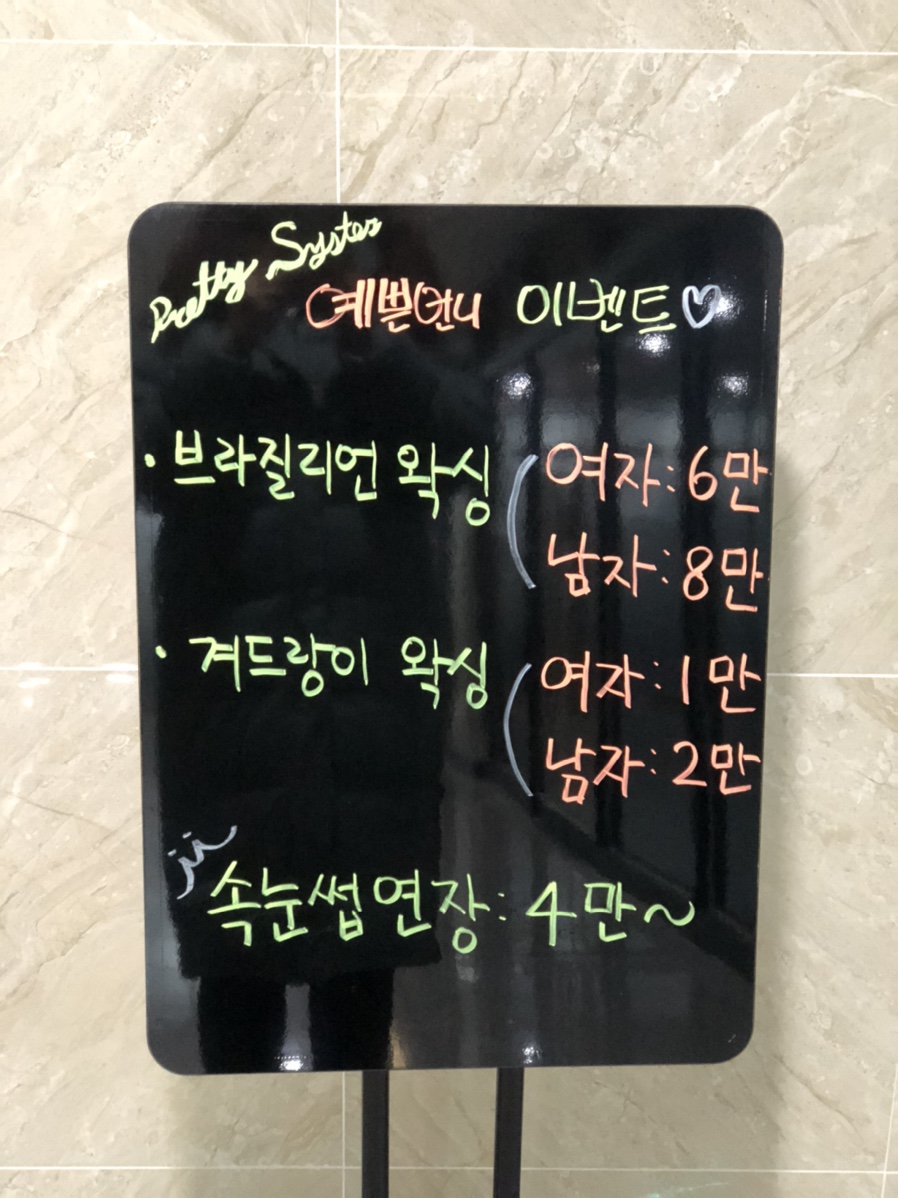 Pretty Syster
예쁜언니 이벤트♡
· 브라질리언 왁싱 ( 여자 : 6만
남자 : 8만
· 겨드랑이 왁싱 ( 여자 : 1만
남자 : 2만
속눈썹연장 : 4만~